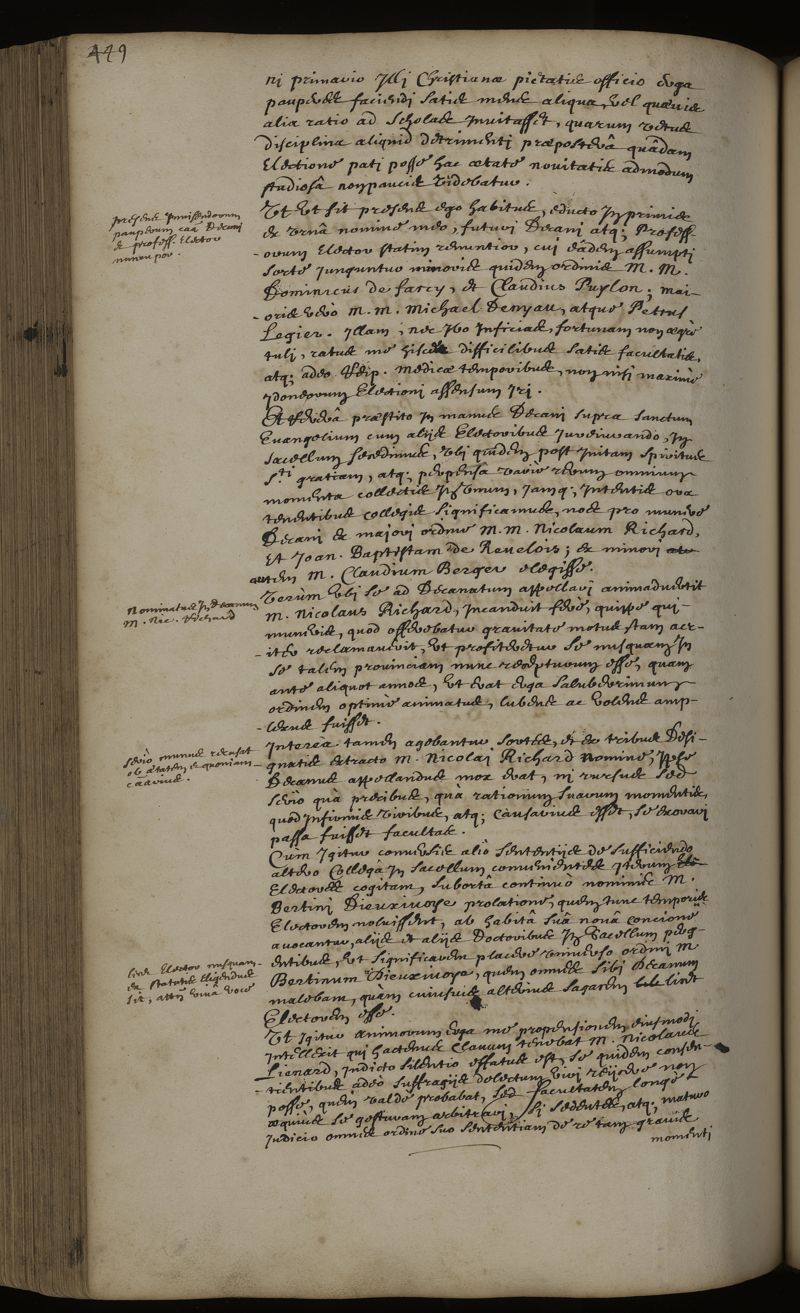 449
ni primario illi Christianæ pietatis officio erga
pauperes faciendi satis mens aliqua, vel quævis
alia ratio ad Scholas invitasset, quarum vetus
disciplina aliquid detrimenti præposterâ quâdam
Electione pati posse hac ætate novitatis admodum
studiosâ non paucis videbatur.
præsens immissendorum
pauperum caâ Decani
& profess. Elector
nuncupor.
Ut ut sit præsens ego habitus, educto in primis
ex urnâ nomine meo, futuri Decani atq; Profess-
-orum Elector statim renuntior, cui eâdem assumpti
sorte junguntur minoris quidem ordinis M. M.
Dominicus de farcy, et Claudius Puylon; mai-
-oris vero M. M. Michael Denyau, atque Petrus
Legier. Illam, nec ibo inficias, fortunam non ægrè
tuli, ratus me hisce difficilibus satis facultatis,
atq; adeo Reip. Medicæ temporibus, non nisi maximè
idoneorum Electioni assensum iri.
præstito in manus Decani supra sanctum
Euangelium cum aliis Electoribus Jurejurando, in
sacellum secedimus, ubi quidem post initam spiritus
S.ti gratiam, atq; perpensa varia rerum omnium
momenta collectis in unum, jamq; intentis ora
tenentibus collegis significamus, nos pro munere
Decani ex majori ordine M. M. Nicolaum Richard,
Et Joan. Baptistam de Revelois; ex minori
autem M. Claudium Berger elegisse.
Nominatus in decanum
M. Nic. Richard
Verùm ubi se ad Decanatum appellari animadvertit
M. Nicolaus Richard, incanduit ferè, quippe qui
muneris, quod offerebatur gravitate motus stam acr-
-iter reclamaverit, ut profiteretur se nusquam in
se talem provinciam nunc recepturum esse, quam
ante aliquot annos, ut erat erga saluberrimum
ordinem optimè animatus, lubens ac volens amp-
-lexus fuisset.
seriò munus recusat
ob ætatem & quoniam
Interea tamen agebantur sortes, et ex tribus desi-
-gnatis extracto M. Nicolai Richard nomine, ipse
Decanus appellandus mox erat, ni rursus sed
seriò quà precibus, quà rationum suarum momentis,
quod infirmis viribus, atq; causarius esset, se exorari
passa fuisset facultas.
Cùm igitur conversis aliò sententiis de sufficiendo
altero Collega in sacellum convenientes iterum
Electores cogitam, subortâ continuò nominis M.
Bertini Dieuxivoye prolatione, quem tunc temporis
Electorem noluissent, ab habitâ suâ novâ concione
avocantur, aliis et aliis Doctoribus in Sacellum perg-
-entibus, ut significarem placere universo ordini M
Bertinum Dieuxivoye, quem omnes sibi Decanum
malebam, quàm cuiusvis alterius sagacem licet
Electorem esse.
licet Elector nusquam
ex statutis eligendus
sit, attñ unâ voce
Ut igitur animorum erga me propensionem eiusmodi
intellexit qui hactenus clavum tenebat M. Nicolaus
Lienard, indicto silentio effatus est, se quidem consen-
-tientibus adeò suffragiis delectum viri reiicere non
posse, quem valde probabat, sed facultatem longè
æquius se gesturam arbitrari, si sedentes, atq; maturo
Judicio omnes ordine suo sententiam de re tam gravis
momenti